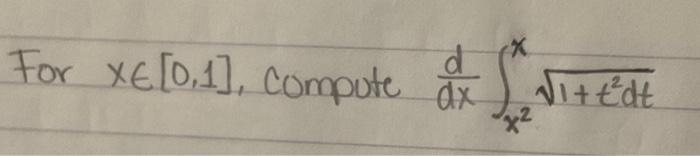 For x∈[0,1], compute \frac{d}{dx} \int_{x^2}^{x} \sqrt{1+t^2 dt}